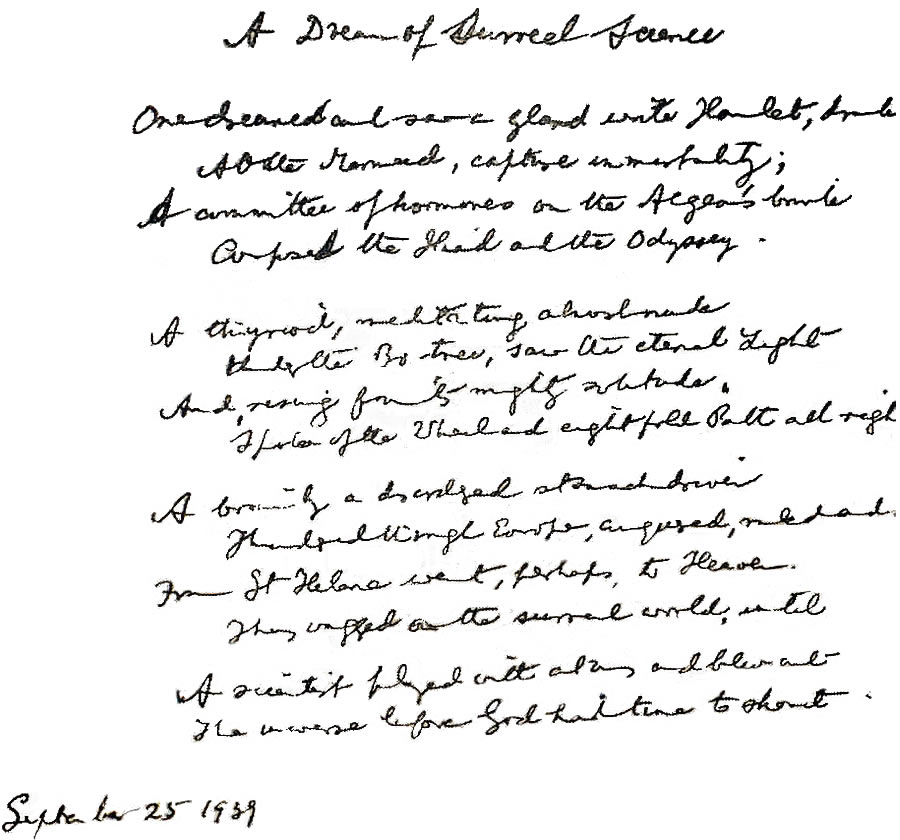 A Dream of Surreal Science
One dreamed and saw a gland write Hamlet, drink
At the Mermaid, capture immortality;
A committee of hormones on the Aegean's brink
Composed the Iliad and the Odyssey.
A thyroid, meditating almost nude
Under the Bo-tree, saw the eternal Light
And, rising from its mighty solitude,
Spoke of the Wheel and eightfold Path all righ
A brain by a disordered stomach driven
Thundered through Europe, conquered, ruled and
From St Helena went, perhaps, to Heaven.
Thus wagged on the surreal world, until
A scientist played with atoms and blew out
The universe before God had time to shout.
September 25 1939